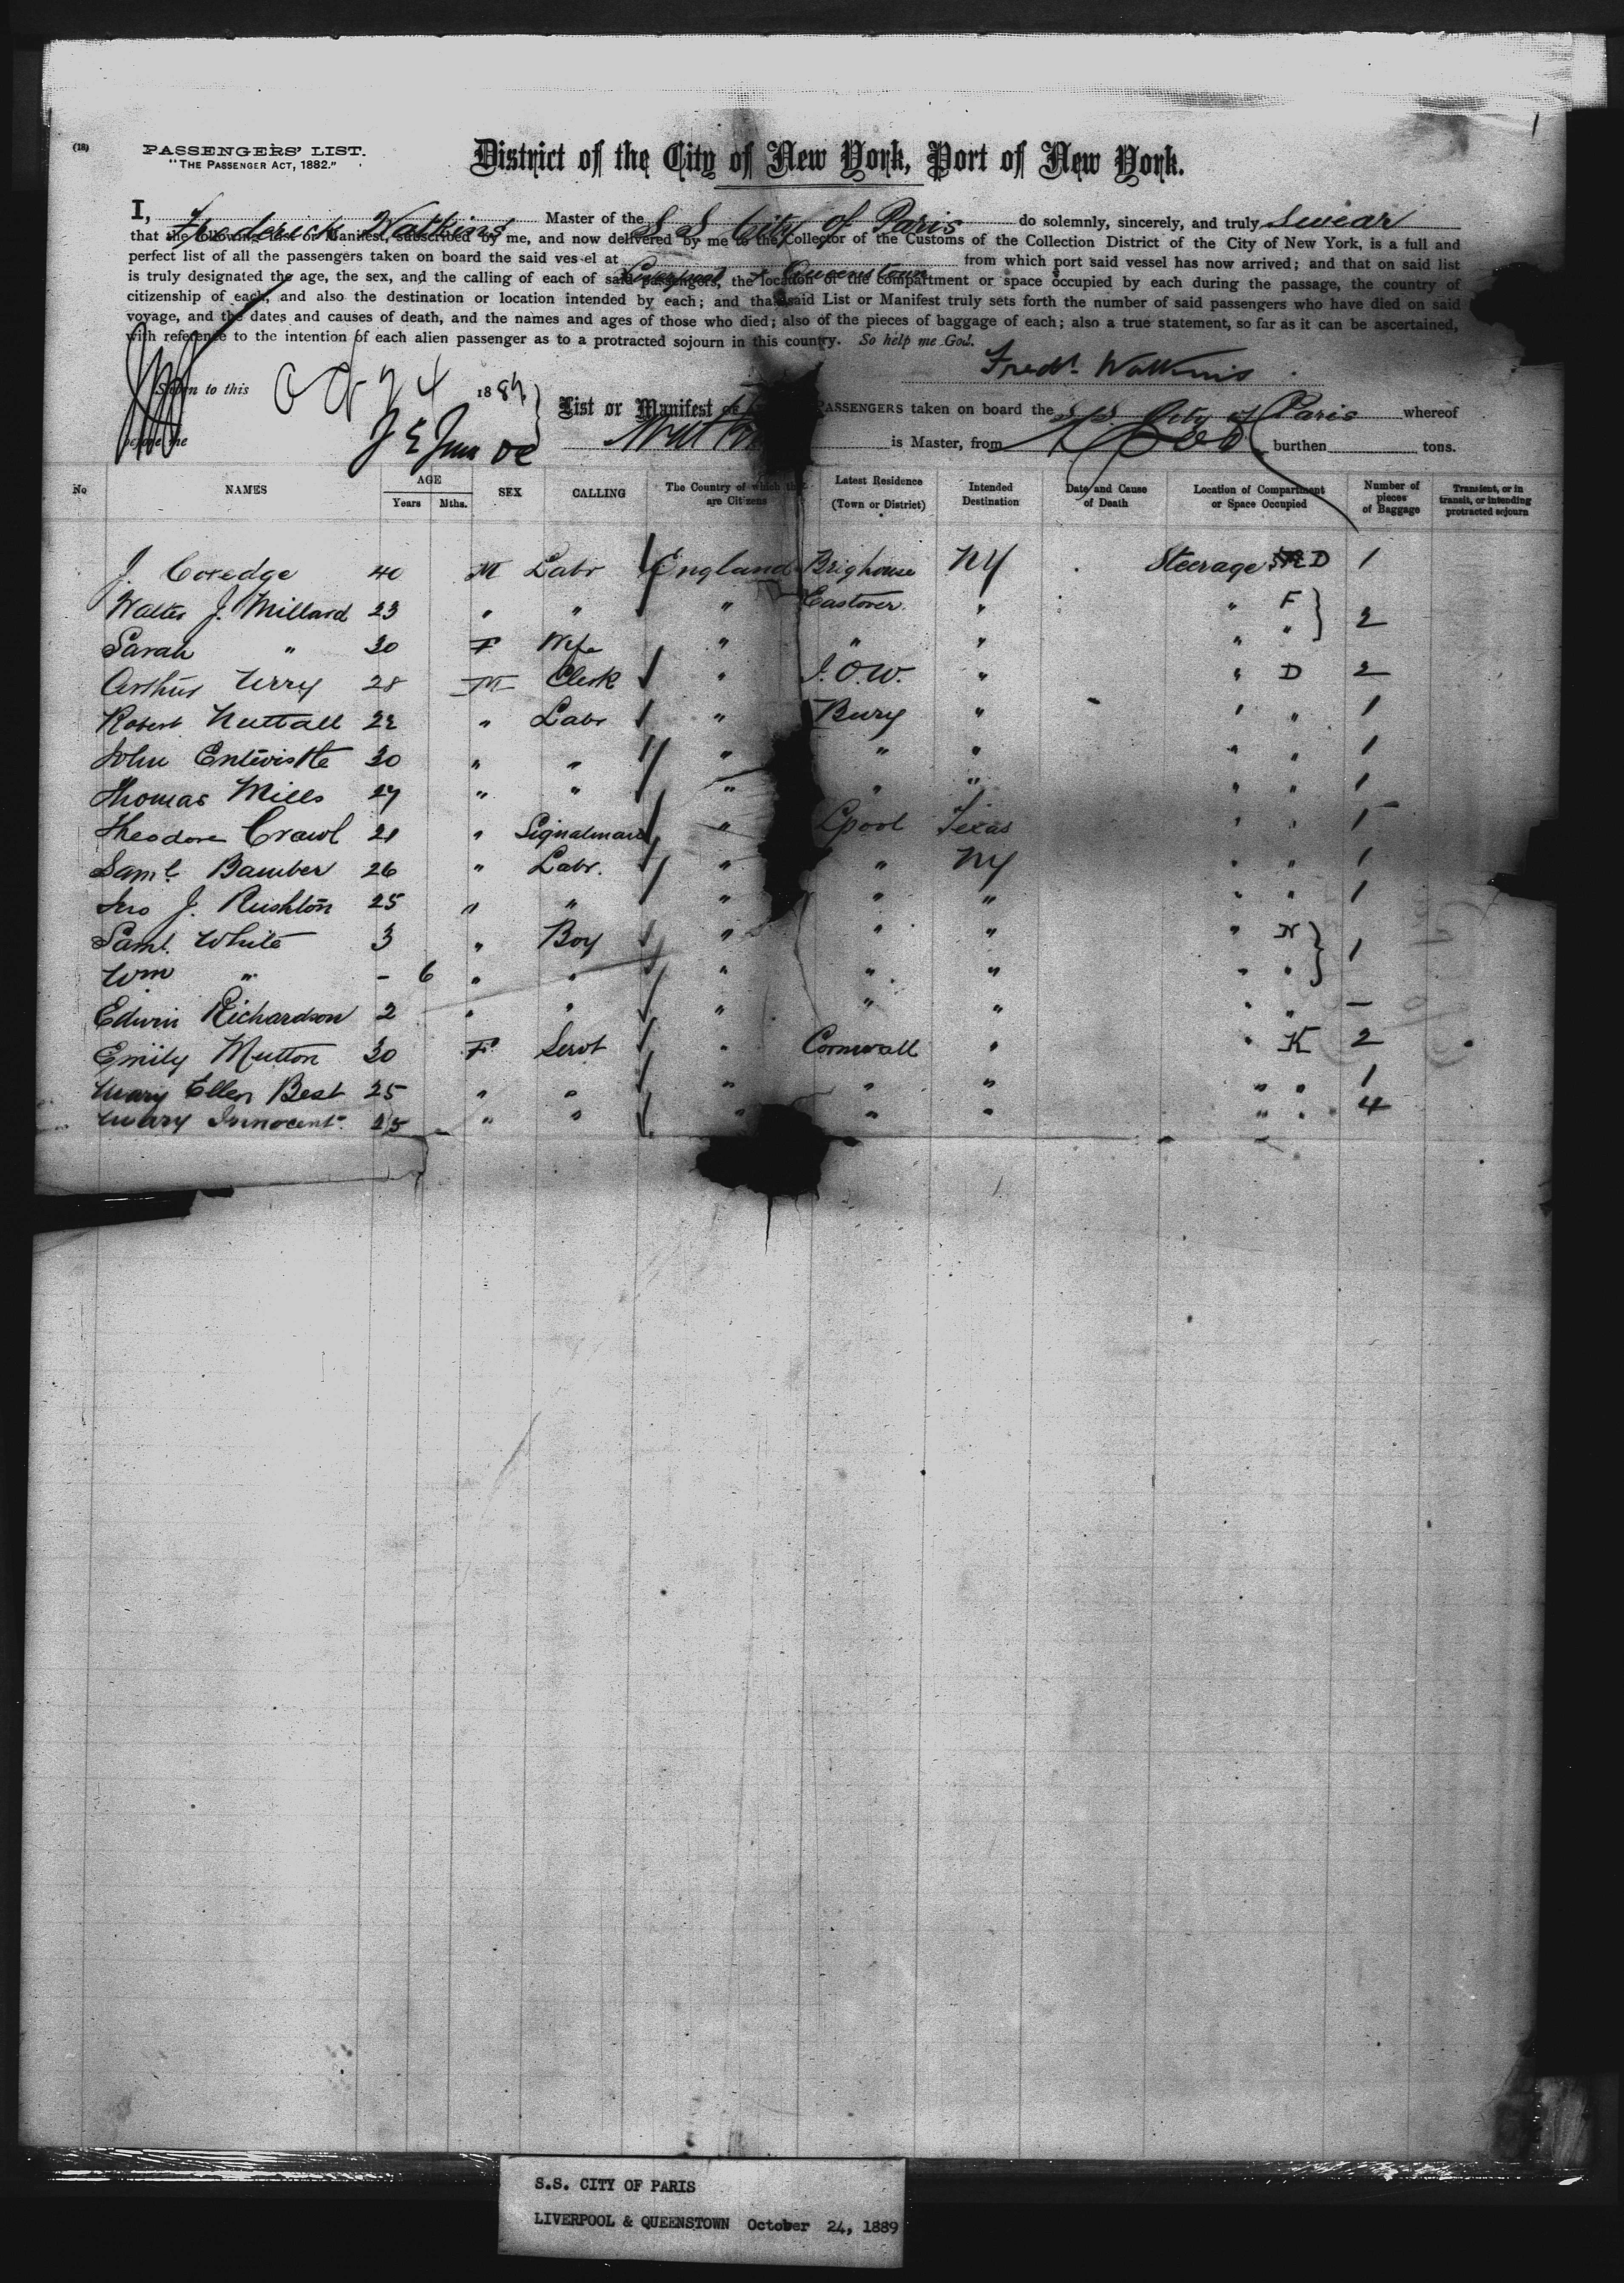 (18)
PASSENGERS' LIST.
"THE PASSENGER ACT, 1882."
District of the City of New York, Port of New York.
I, Frederick Watkins Master of the S S City of Paris do solemnly, sincerely, and truly swear
that the following List or Manifest, subscribed by me, and now delivered by me to the Collector of the Customs of the Collection District of the City of New York, is a full and
perfect list of all the passengers taken on board the said ves el at Liverpool & Queenstown from which port said vessel has now arrived; and that on said list
is truly designated the age, the sex, and the calling of each of said passengers, the location of the compartment or space occupied by each during the passage, the country of
citizenship of each, and also the destination or location intended by each; and that said List or Manifest truly sets forth the number of said passengers who have died on said
voyage, and the dates and causes of death, and the names and ages of those who died; also of the pieces of baggage of each; also a true statement, so far as it can be ascertained,
with reference to the intention of each alien passenger as to a protracted sojourn in this country. So help me God.
Fredk. Watkins
Sworn to this Oct 24 1889
before me
List or Manifest OF PASSENGERS taken on board the S.S. City of Paris whereof
is Master, from burthen tons.
No NAMES AGE Years Mths. SEX CALLING The Country of which they are Citizens Latest Residence (Town or District) Intended Destination Date and Cause of Death Location of Compartment or Space Occupied Number of pieces of Baggage Transient, or in transit, or intending protracted sojourn
J. Coxedge 40 M Labr England Brighouse NY Steerage D 1
Walter J. Millard 23 " " " Eastover " " F 2
Sarah " 30 F Wife " " " " "
Arthur Urry 28 M Clerk " I.O.W. " " D 2
Robert Nuttall 22 " Labr " Bury " " " 1
John Entwistle 30 " " " " " " " 1
Thomas Mills 27 " " " " " " " 1
Theodore Crawl 21 " Signalman " Lpool Texas " " 1
Saml. Bamber 26 " Labr. " " NY " " 1
Jno J. Rushton 25 " " " " " " " 1
Saml. White 3 " Boy " " " " N 1
Wm " - 6 " " " " " " "
Edwin Richardson 2 " " " " " " " -
Emily Mutton 30 F Servt " Cornwall " " K 2
Mary Ellen Best 25 " " " " " " " 1
Mary Innocent 25 " " " " " " " 4
S.S. CITY OF PARIS
LIVERPOOL & QUEENSTOWN October 24, 1889